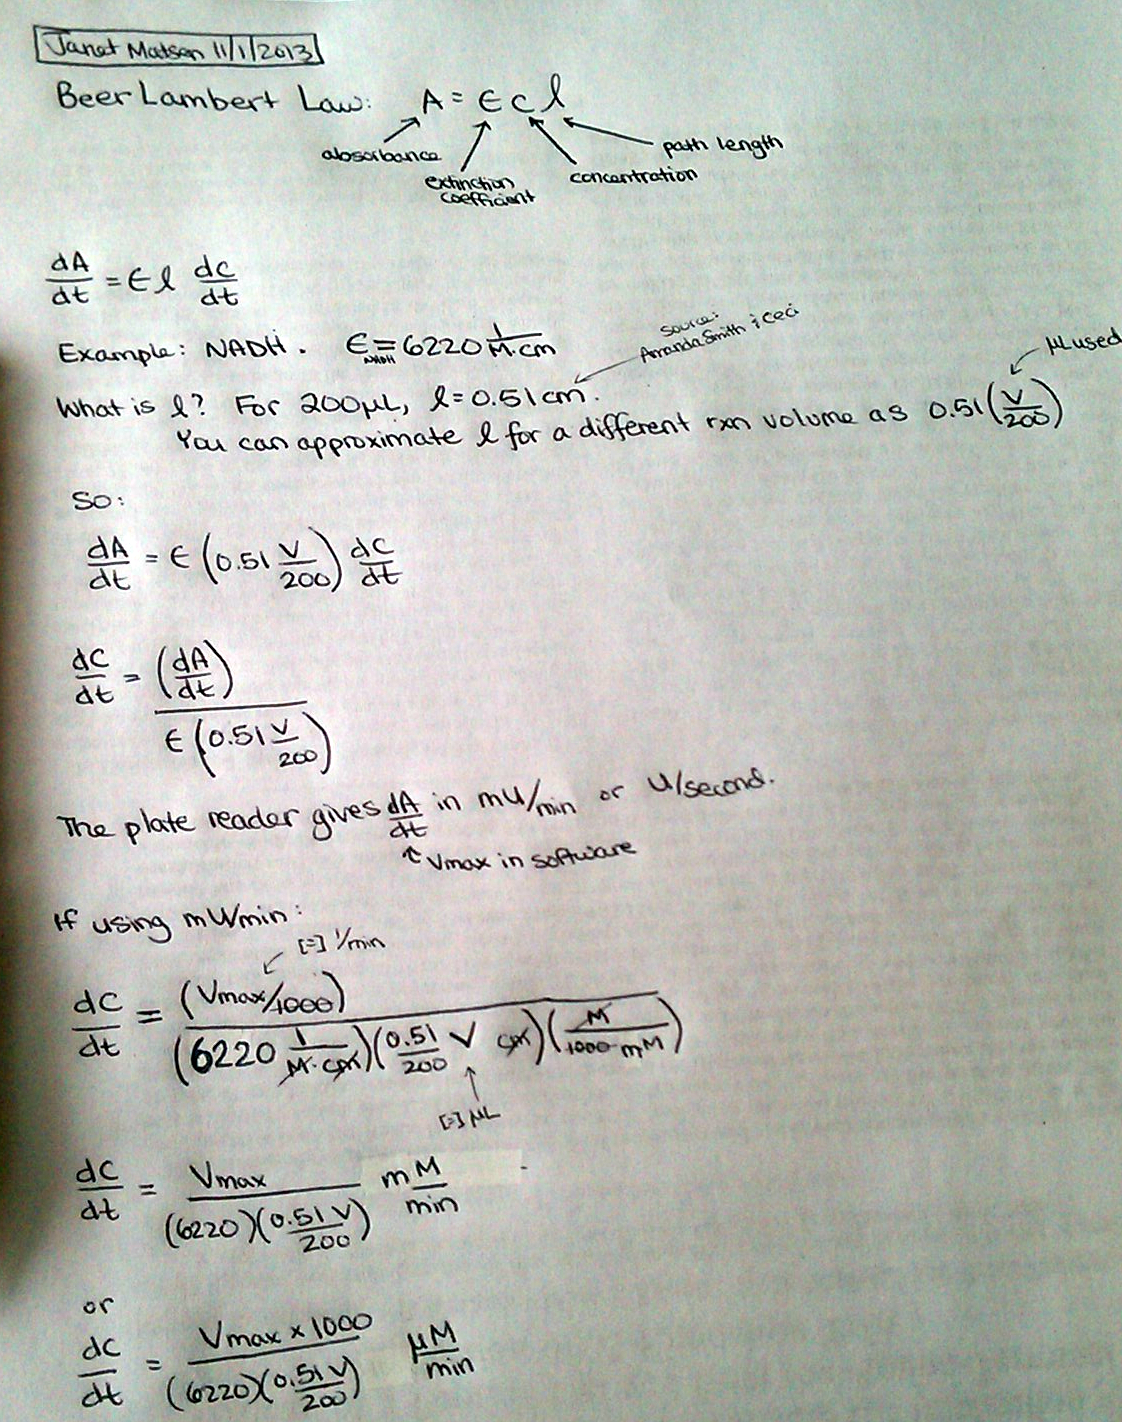 Janet Matsen 11/1/2013
Beer Lambert Law: A = ϵ c l
absorbance
extinction coefficient
concentration
path length
dA/dt = ϵ l dc/dt
Source: Amanda Smith & Ceci
Example: NADH. ϵ_NADH = 6220 1/(M·cm)
µL used
What is l? For 200µL, l = 0.51cm.
You can approximate l for a different rxn volume as 0.51(V/200)
So:
dA/dt = ϵ (0.51 V/200) dC/dt
dC/dt = (dA/dt) / ϵ(0.51 V/200)
The plate reader gives dA/dt in mU/min or U/second.
↑ Vmax in software
If using mU/min:
[=] 1/min
dC/dt = (Vmax/1000) / (6220 1/(M·cm))(0.51/200 V cm)(M/1000 mM)
[=] µL
dC/dt = Vmax / (6220)(0.51 V/200) mM/min
or
dC/dt = Vmax x 1000 / (6220)(0.51 V/200) µM/min